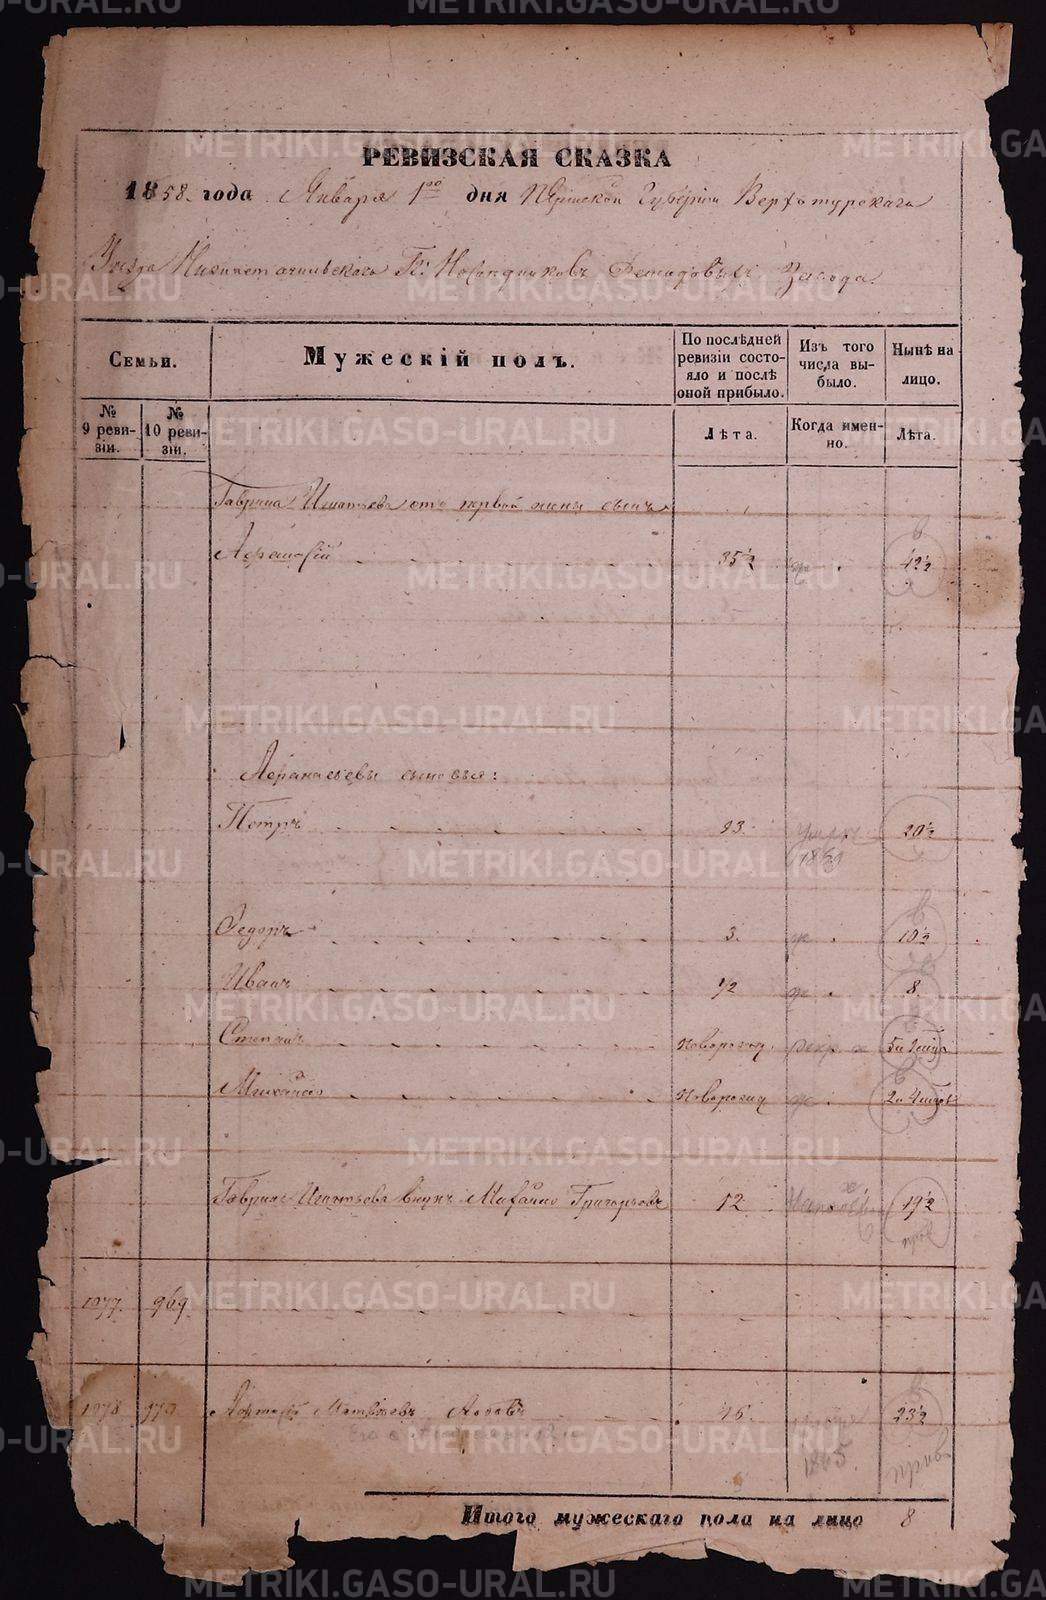 РЕВИЗСКАЯ СКАЗКА
1858 года Января 1го дня Пермской Губернии Верхотурскаго
Уезда Нижнетагильскаго Гг. Наследниковъ Демидовыхъ Завода
Семьи.
Мужескій полъ.
По послѣдней ревизіи состояло и послѣ оной прибыло.
Изъ того числа выбыло.
Нынѣ на лицо.
№ 9 ревизіи.
№ 10 ревизіи.
Лѣта.
Когда именно.
Лѣта.
Гаврила Игнатьева отъ первой жены сынъ
Афанасій 35½ 42½
Афанасьевы сыновья:
Петръ 13. Умеръ 1869 20½
Федоръ 3. 10½
Иванъ ½ 8.
Степанъ Новорожд. рекр
Михайло Новорожд
Гаврила Игнатьева внукъ Михайло Григорьевъ 12 19½
1077. 969.
1078 970 Матвѣевъ 16. 1865. 23½
Итого мужескаго пола на лицо 8
METRIKI.GASO-URAL.RU